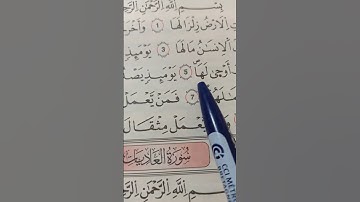 بِسْمِ اللَّهِ الرَّحْمَٰنِ الرَّحِي
تِ الْأَرْضُ زِلْزَالَهَا ١ وَأَخْرَ
الْإِنسَانُ مَا لَهَا ٣ يَوْمَئِذٍ
أَوْحَىٰ لَهَا ٥ يَوْمَئِذٍ يَصْدُ
لَهُمْ ٦ فَمَن يَعْمَلْ
يَعْمَلْ مِثْقَالَ
سُورَةُ الْعَادِيَاتِ
مِ اللَّهِ الرَّحْمَٰنِ الرَّحِ
CCI METRO